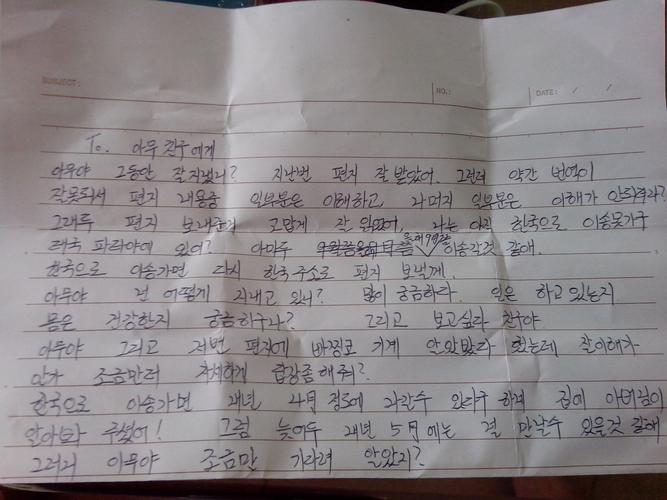 SUBJECT: NO.: DATE: / /
To. 아무 친구에게
아무야 그동안 잘지냈니? 지난번 편지 잘 받았어. 그런데 약간 번역이
잘못되서 편지 내용중 일부분은 이해하고, 나머지 일부분은 이해가 안되더라?
그래두 편지 보내준거 고맙게 잘 읽었어, 나는 아직 한국으로 이송못가구
태국 파타야에 있어? 아마두 올해 9월말 이송갈것 같애.
한국으로 이송가면 다시 한국 주소로 편지 보낼께.
아무야 넌 어떻게 지내고 있니? 많이 궁금하다. 일은 하고 있는지
몸은 건강한지 궁금하구나? 그리고 보고싶다 친구야
아무야 그리고 저번 편지에 바찡코 가게 안았봤다 했는데 잘이해가
안가 조금만더 자세하게 답장좀 해줘?
한국으로 이송가면 내년 4月 정도에 나갈수 있다구 하며 집에 아버님이
알아봐 주셨어! 그럼 늦어두 내년 5月에는 걸 만날수 있을것 같애
그러니 아무야 조금만 기다려 알았지?